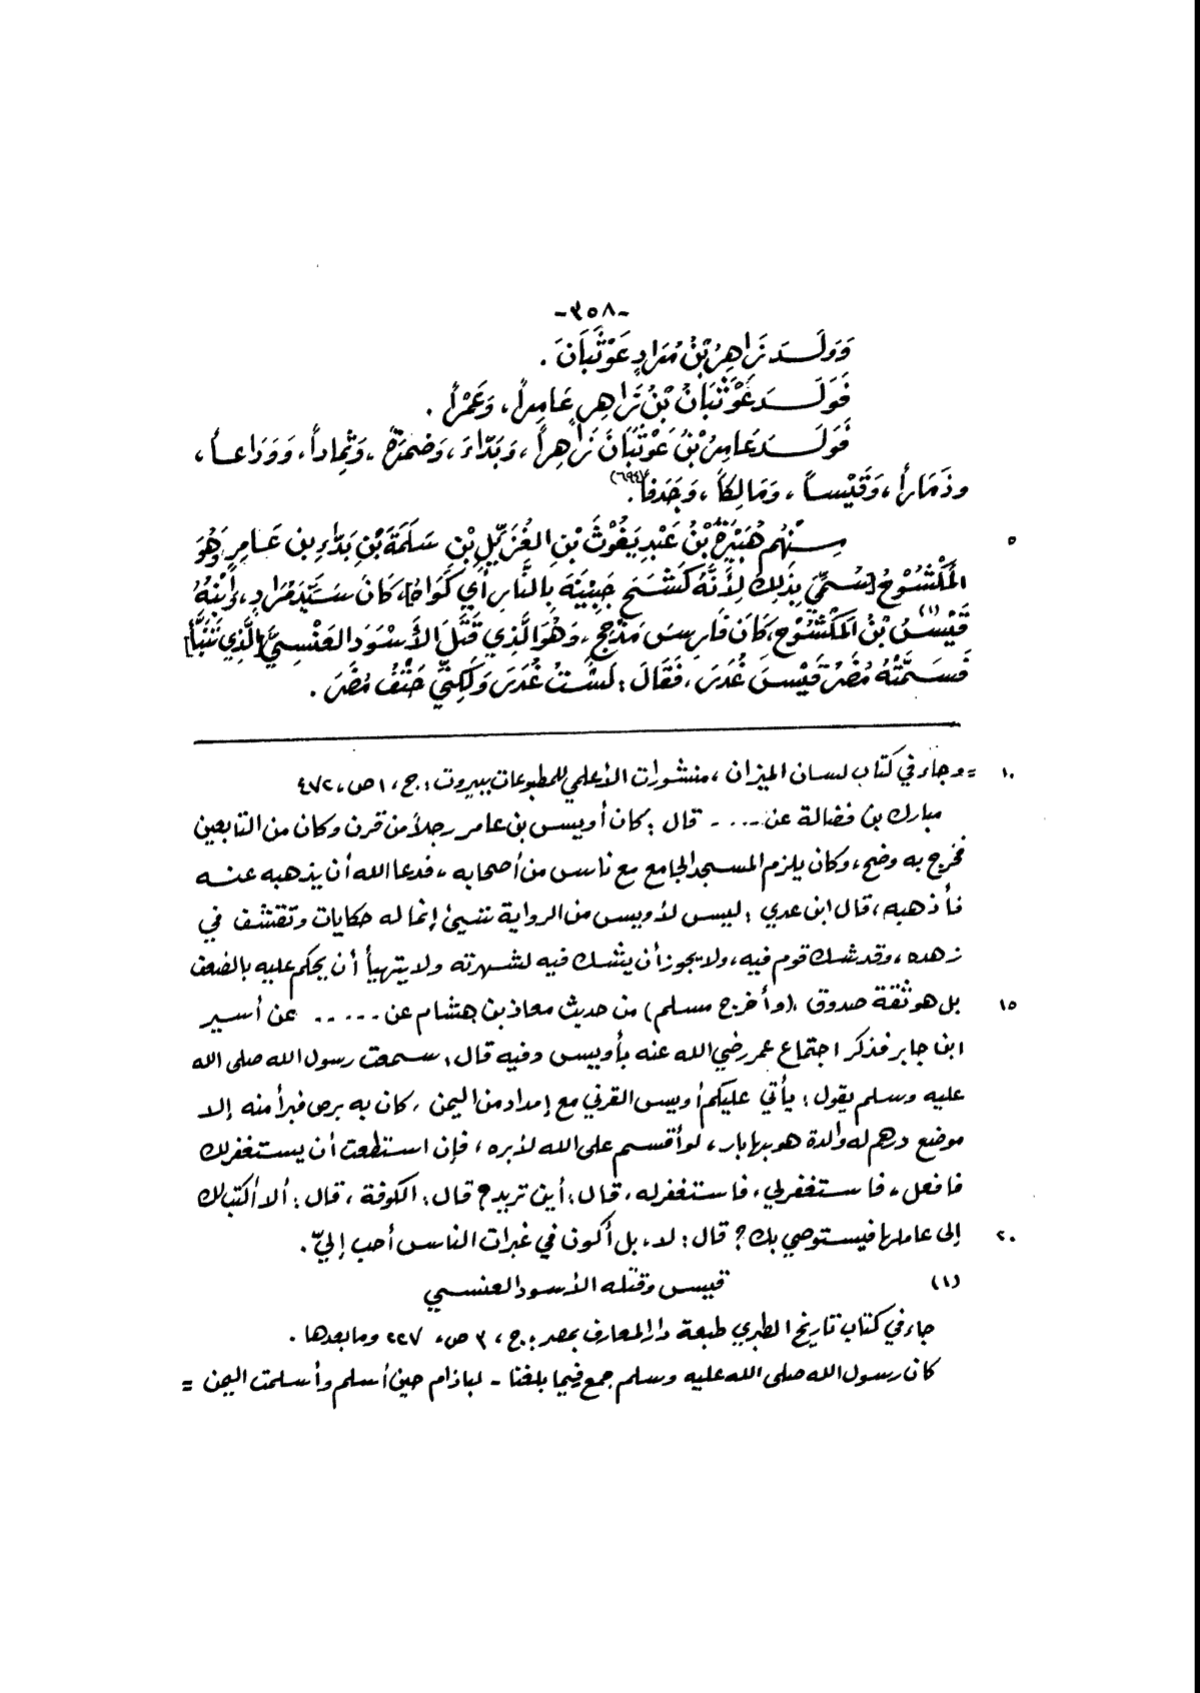 -٣٥٨-
وَوَلَـدَ زَاهِرُ بْنُ مُرَادٍ عَوْثَبَانَ .
فَوَلَـدَ عَوْثَبَانُ بْنُ زَاهِرٍ عَامِراً ، وَعَمْراً .
فَوَلَـدَ عَامِرُ بْنُ عَوْثَبَانَ زَاهِراً ، وَبَدَّاءَ ، وَضَمْرَةَ ، وَثِمَاداً ، وَوَدَاعـاً ،
وذَمَاراً ، وَقَيْساً ، وَمَالِكاً ، وَجَدَفاً (٦٩٤) .
٥ مِـنْهُم هُبَيْرَةُ بْنُ عَبْدِ يَغُوْثَ بْنِ الغُزَيِّلِ بْنِ سَلَمَةَ بْنِ بَدَّاءِ بنِ عَـامِرٍ وَهُوَ
المَكْشُوْحُ [سُمِّيَ بِذَلِكَ لِأَنَّهُ كَشَحَ جَبِيْنَهُ بِالنَّارِ أَي كَوَاهُ] ، كَانَ سَيِّدَ مُرَادٍ ، إِبْنُهُ
قَيْسُ بْنُ المَكْشُوْحِ (١) ، كَانَ فَارِسَ مَذْحِجٍ ، وَهُوَ الَّذِي قَتَلَ الأَسْوَدَ العَنْسِيَّ [الَّذِي تَنَبَّأَ]
فَسَمَّتْهُ مُضَرُ قَيْسَ غُدَرَ ، فَقَالَ : لَسْتُ غُدَرَ وَلَكِنِّي حَتْفُ مُضَرَ .
١٠ = وجاء في كتاب لسان الميزان ، منشورات الأعلمي للمطبوعات ببيروت : ج ، ١ ص ، ٤٧٢
مبارك بن فضالة عن .... قال : كان أويس بن عامر رجلاً من قرن وكان من التابعين
فخرج به وضح ، وكان يلزم المسجد الجامع مع ناس من أصحابه ، فدعا الله أن يذهبه عنـه
فأذهبه ، قال ابن عدي : ليس لأويس من الرواية شيئ إنما له حكايات وتقشف في
زهده ، وقد شك قوم فيه ، ولا يجوز أن يشك فيه لشهرته ولا يتهيأ أن يحكم عليه بالضعف
١٥ بل هو ثقة صدوق ، (وأخرج مسلم) من حديث معاذ بن هشام عن ..... عن أسير
ابن جابر فذكر اجتماع عمر رضي الله عنه بأويس وفيه قال : سمعت رسول الله صلى الله
عليه وسلم يقول : يأتي عليكم أويس القرني مع إمداد من اليمن ، كان به برص فبرأ منه إلا
موضع درهم له والدة هو بها بار ، لو أقسم على الله لأبره ، فإن استطعت أن يستغفر لك
فافعل ، فاستغفر لي ، فاستغفر له ، قال : أين تريد ؟ قال : الكوفة ، قال : ألا أكتب لك
٢٠ إلى عاملها فيستوصي بك ؟ قال : لا ، بل أكون في غبرات الناس أحب إليّ .
(١) قيس وقتله الأسود العنسي
جاء في كتاب تاريخ الطبري طبعة دار المعارف بمصر : ج ، ٣ ص ، ٢٢٧ وما بعدها .
كان رسول الله صلى الله عليه وسلم جمع فيما بلغنا - لباذام حين أسلم وأسلمت اليمن =